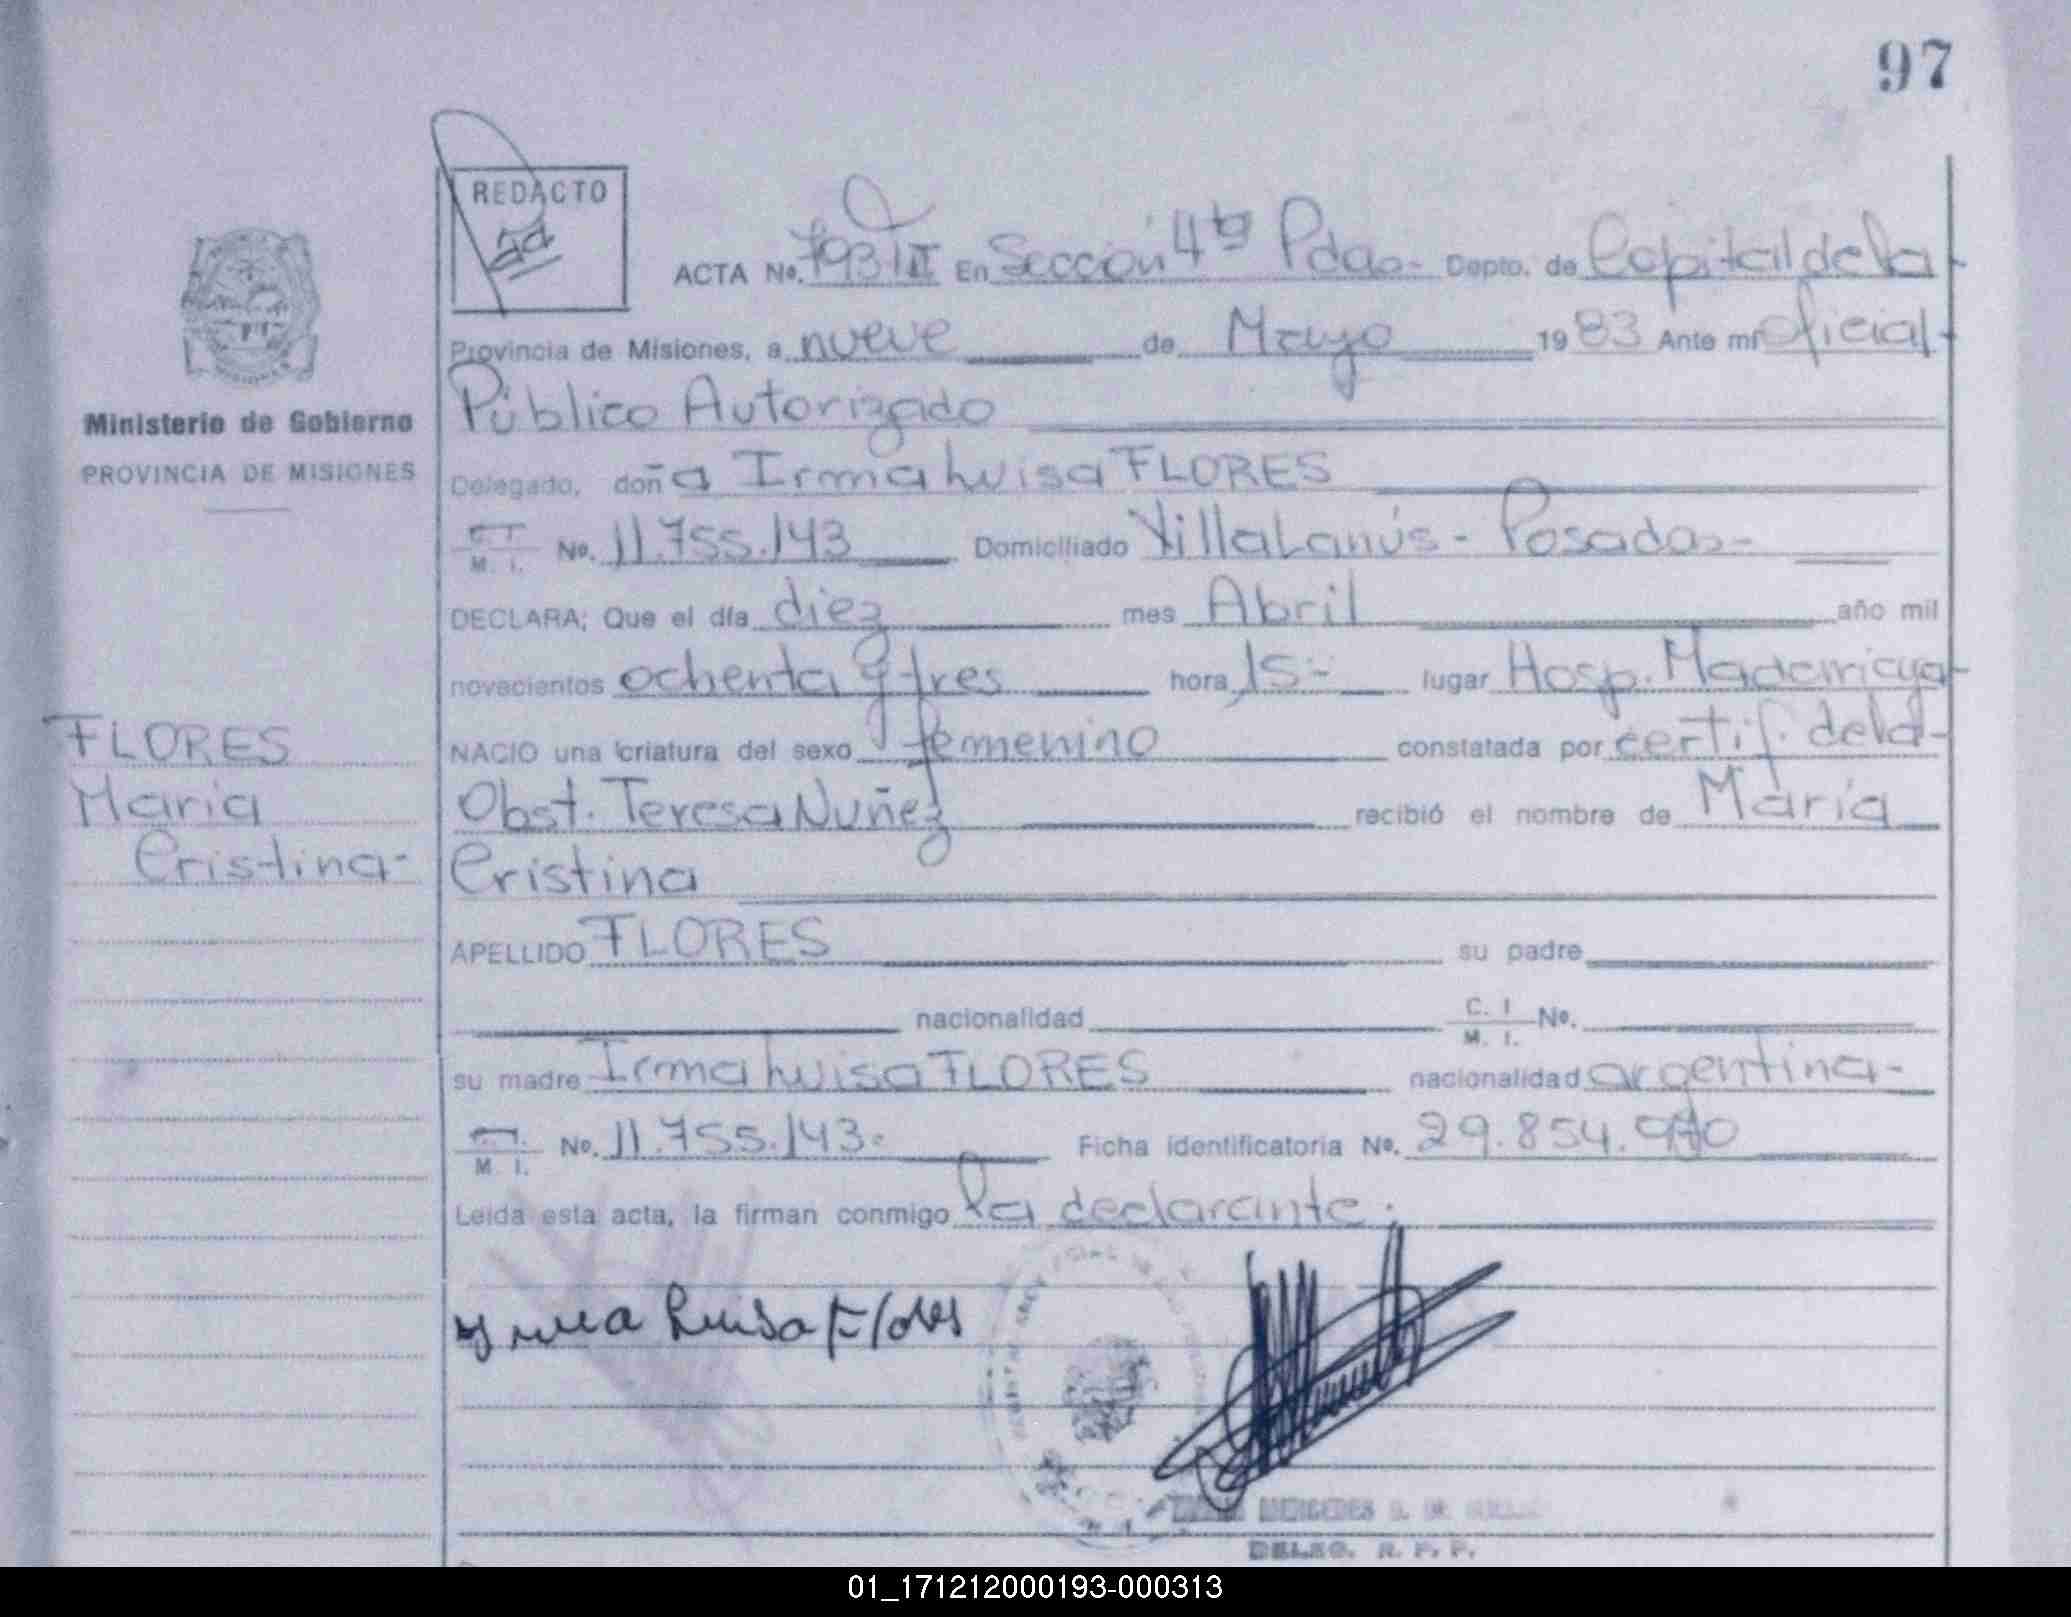 97
REDACTO
ACTA No. 793 III En Sección 4ta Pdas- Depto. de Capital de la
Provincia de Misiones, a nueve de Mayo 1983 Ante mí Oficial
Ministerio de Gobierno
PROVINCIA DE MISIONES
Público Autorizado
Delegado, doña Irma Luisa FLORES
M. I. No. 11.755.143 Domiciliado Villa Lanús - Posadas-
DECLARA; Que el día diez mes Abril año mil
novecientos ochenta y tres hora 15- lugar Hosp. Madariaga-
NACIO una criatura del sexo femenino constatada por certif. de la-
Obst. Teresa Nuñez recibió el nombre de María
Cristina
FLORES
María
Cristina-
APELLIDO FLORES su padre
nacionalidad C. I M. I. No.
su madre Irma Luisa FLORES nacionalidad argentina-
M. I. No. 11.755.143. Ficha identificatoria No. 29.854.970
Leída esta acta, la firman conmigo la declarante.
Irma Luisa Flores
MERCEDES
DELEG. R. P. P.
01_171212000193-000313